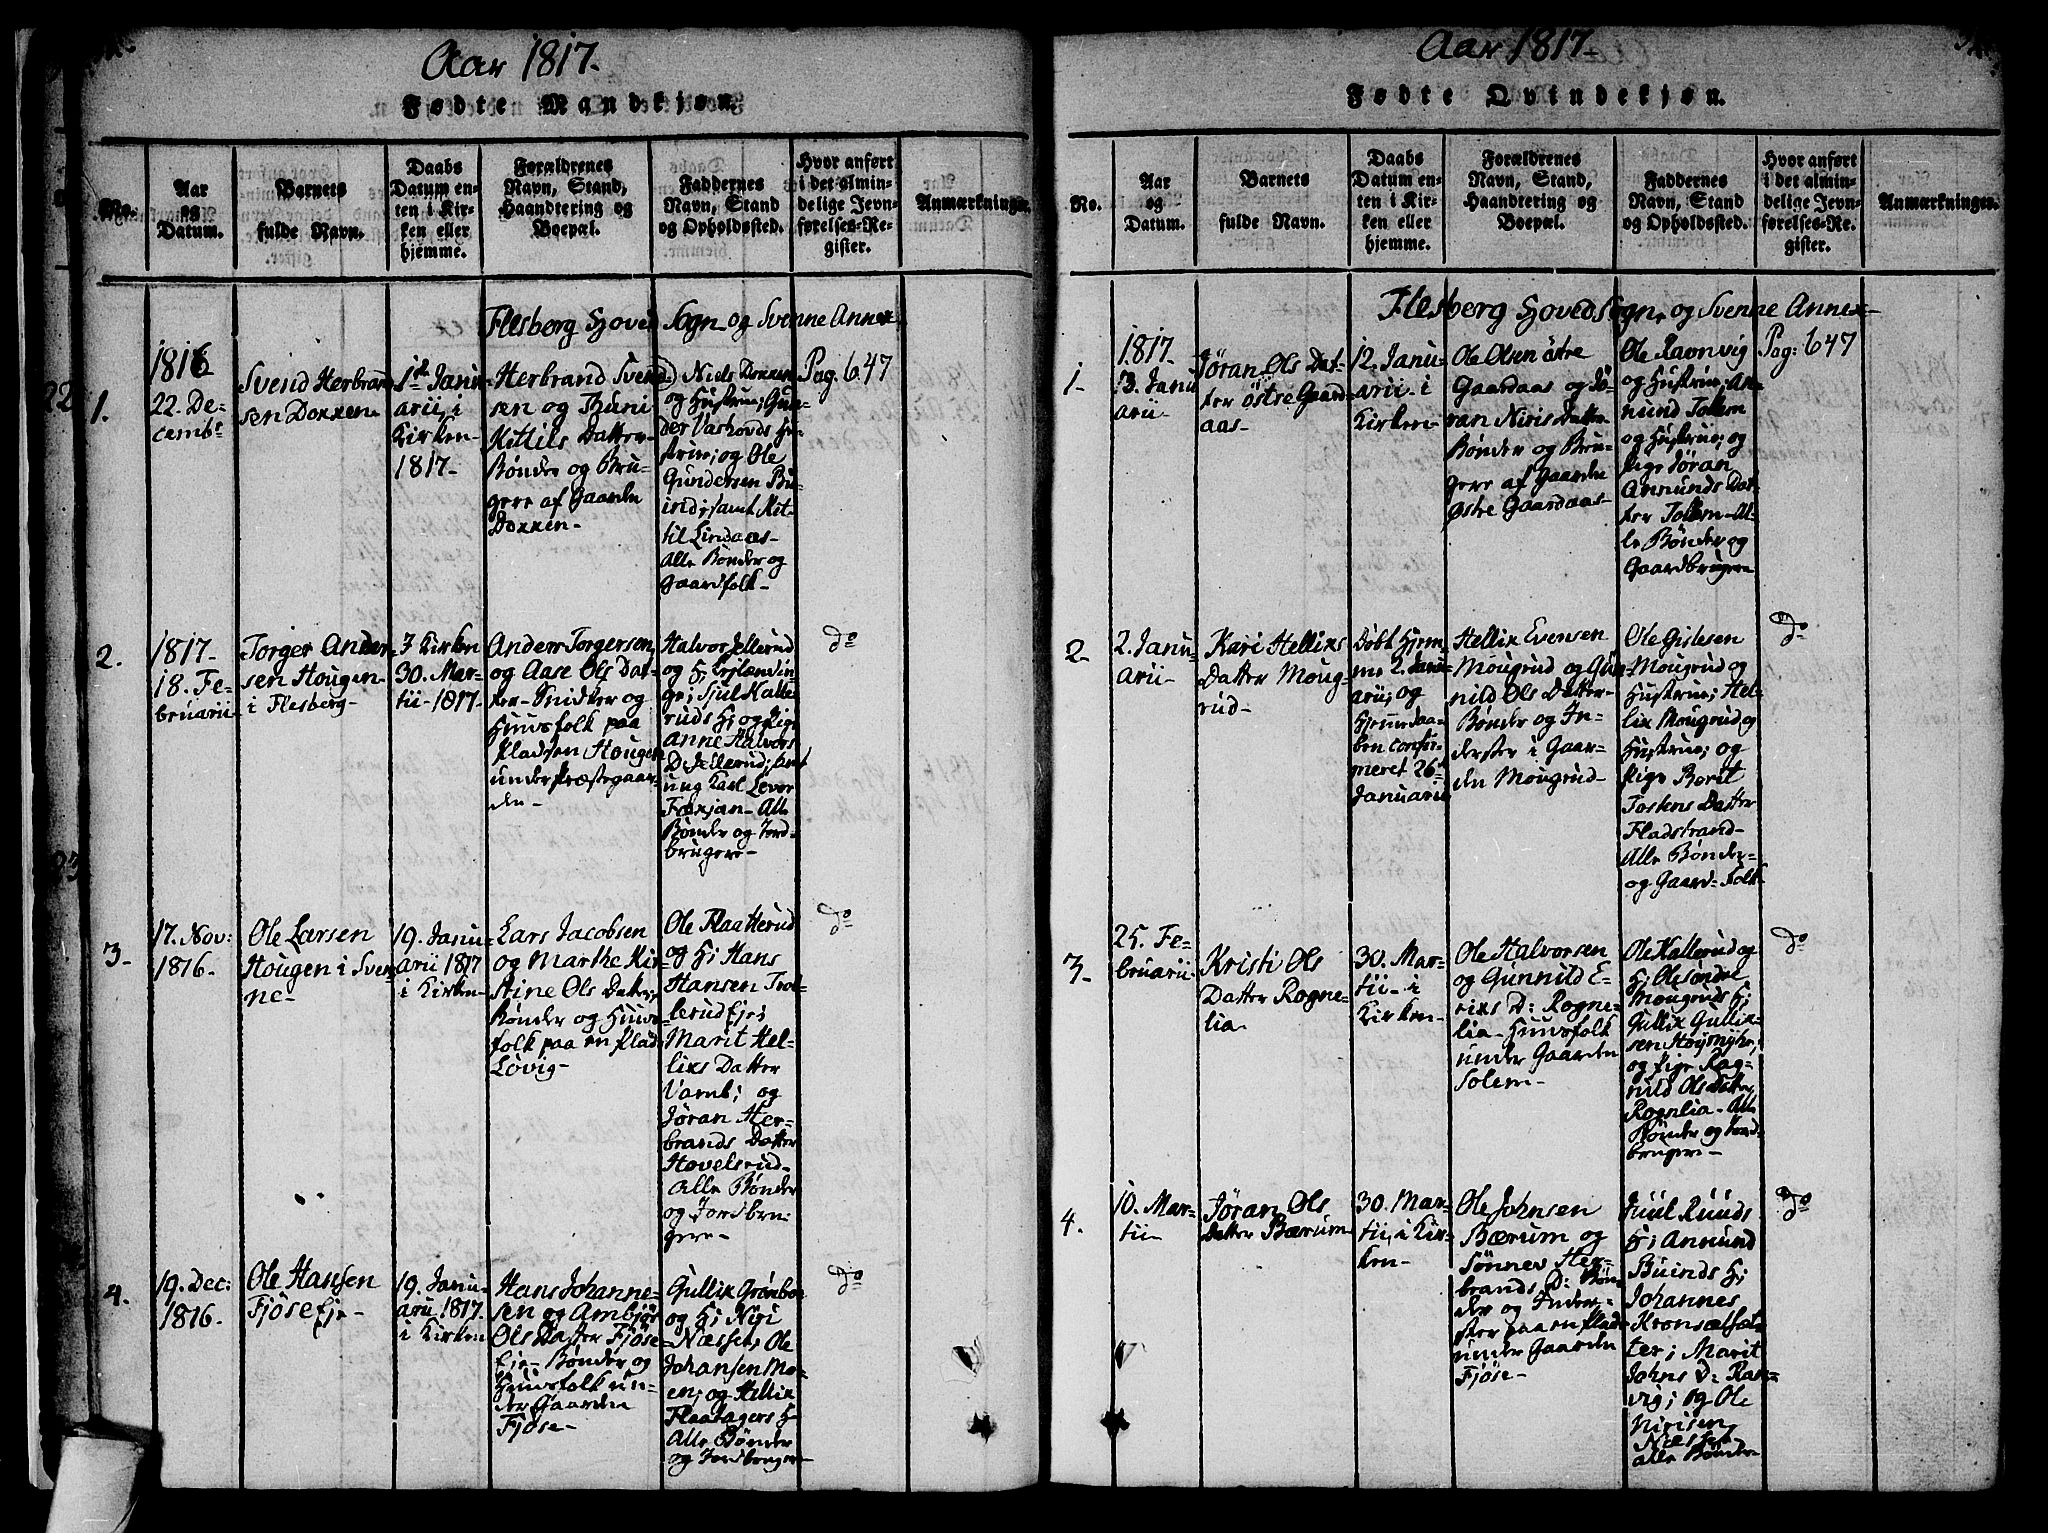 Aar 1817.
Fødte Mandkjøn.
No.
Aar
og
Datum.
Barnets
fulde Navn.
Daabs
Datum en-
ten i Kir-
ken eller
hjemme.
Forældrenes
Navn, Stand,
Haandtering og
Boepæl.
Faddernes
Navn, Stand
og Opholdssted.
Hvor anført
i det almin-
delige Jevn-
førelses-Re-
gister.
Anmærkninger.
Flesberg Hoved Sogn og Svenne Annex
1.
1816
22. De-
cembr
Svend Herbrand
sen Doxxen
1st Janu-
arii, i
Kirken-
1817-
Herbrand Svend
sen og Thuni
Kittils Datter-
Bønder og Bru-
gere af Gaarden
Doxxen-
Niels Doxxen
og Hustrue; Gun-
der Vashovds Hu-
strue; og Ole
Gundersen Bu-
ind; samt Kit-
til Lindaas-
Alle Bønder og
Gaardfolk-
Pag. 647
2.
1817-
18. Fe-
bruarii-
Torger Ander
sen Hougen-
i Flesberg-
I Kirken
30. Mar-
tii-1817-
Anders Torgersen,
og Aase Ols Dat-
ter- Snidker og
Huusfolk paa
Pladsen Hougen
under Præstegaar-
den-
Halvor Jellerud
og H;
Juul Kalle
ruds H; og Pige
Anne Halvors
D. Jellerud; samt
ung Karl Lever
Foxjan- Alle
Bønder og Jord-
brugere-
do
3-
17. Nov:
1816-
Ole Larsen
Hougen i Sven
ne-
19. Janu-
arii 1817
i Kirken-
Lars Jacobsen
og Marthe Kir-
stine Ols Datter;
Bønder og Huus-
folk paa en Plads
Løvig-
Ole Flaatterud
og H; Hans
Hansen Trol-
lerud Eje;
Marit Hel-
lixs Datter
Varnb; og
Jøran Her-
brands Datter
Hovelsrud-
Alle Bønder
og Jordbru-
gere-
do
4.
19. Dec:
1816-
Ole Hansen
Fjøse Eje-
19. Janu-
arii 1817.
i Kirken
Hans Johanne-
sen og Ambjør
Ols Datter Fjøse
Eje- Bønder og
Huusfolk un-
der Gaarden
Fjøse-
Gullix Grønbo-
og H; Niri
Næssets, Ole
Johansen Mo-
en; og Hellix
Flaatagers H-
Alle Bønder
og Jordbruger-
do
Aar 1817-
Fødte Qvindekjøn.
No.
Aar
og
Datum.
Barnets
fulde Navn.
Daabs
Datum en-
ten i Kir-
ken eller
hjemme.
Forældrenes
Navn, Stand,
Haandtering og
Boepæl.
Faddernes
Navn, Stand
og Opholdssted.
Hvor anført
i det almin-
delige Jevn-
førelses-Re-
gister.
Anmærkninger.
Flesberg Hovedsogn, og Svenne Annex-
1-
1817-
3. Janu
arii-
Jøran Ols Dat-
ter østre Gaard-
aas-
12. Janu-
arii- i
Kirken-
Ole Olsen østre
Gaardaas og Jø-
ran Niris Datter
Bønder og Bru-
gere af Gaarden
Østre Gaardaas-
Ole Ravnvig
og Hustrue; An-
nund Tollen
og Hustrue; og
Pige Jøran
Annunds Dat-
ter Tollen- Al-
le Bønder og
Gaardbrugere
Pag: 647
2-
2. Janu-
arii-
Kari Hellixs
Datter Moug-
rud-
Døbt Hjem-
me 2. Janu-
arii; og
Hjemmedaa-
ben confir-
meret 26
Januarii
Hellix Evensen
Mougrud og Gun-
nild Ols Datter-
Bønder og In-
derster i Gaar-
den Mougrud-
Ole Gislesen
Mougrud og
Hustrue; Hel-
lix Mougrud og
Hustrue; og
Pige Berit
Tostens Datter
Fladstrand-
Alle Bønder-
og Gaard-Folk
do
3-
25. Fe-
bruarii-
Kristi Ols
Datter Rogne-
lia-
30. Mar-
tii- i
Kirken-
Ole Halvorsen
og Gunnild E-
rixs D: Rogne-
lia- Huusfolk
under Gaarden
Solem-
Ole Kallerud og
H; Ole søndre
Mougruds H;
Gullix Gullix-
sen
og Pige Rag-
nild Ols Datter
Rognlia- Alle
Bønder og Jord-
brugere-
do
4.
10. Mar-
tii-
Jøran Ols
Datter Bærum-
30. Mar-
tii, i Kir-
ken-
Ole Johnsen
Bærum og
Sønnev Her-
brands D: Bøn-
der og Inder-
ster paa en Plads
under Gaarden
Fjøse-
Juul Ruuds
H; Annund
Buinds H;
Johannes
Marit
Johns D: Ravn-
vig; og Ole
Nirisen
Næsset
alle Bønder-
do